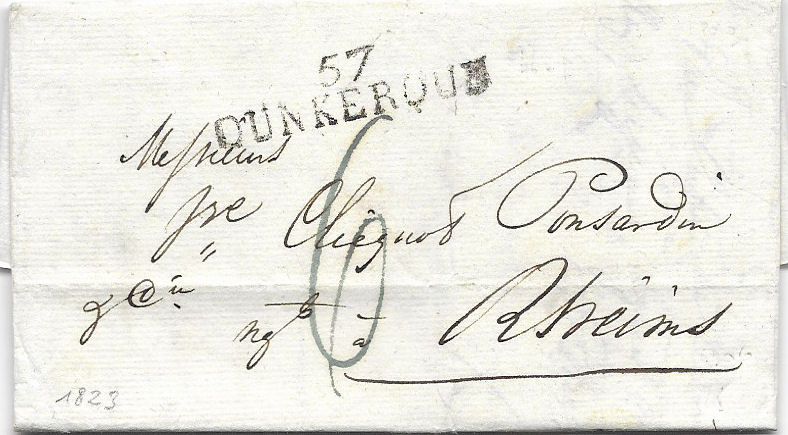 57
DUNKERQUE
Messieurs
6
Vve Clicquot Ponsardin
& Cie
ngts à Rheims
1823